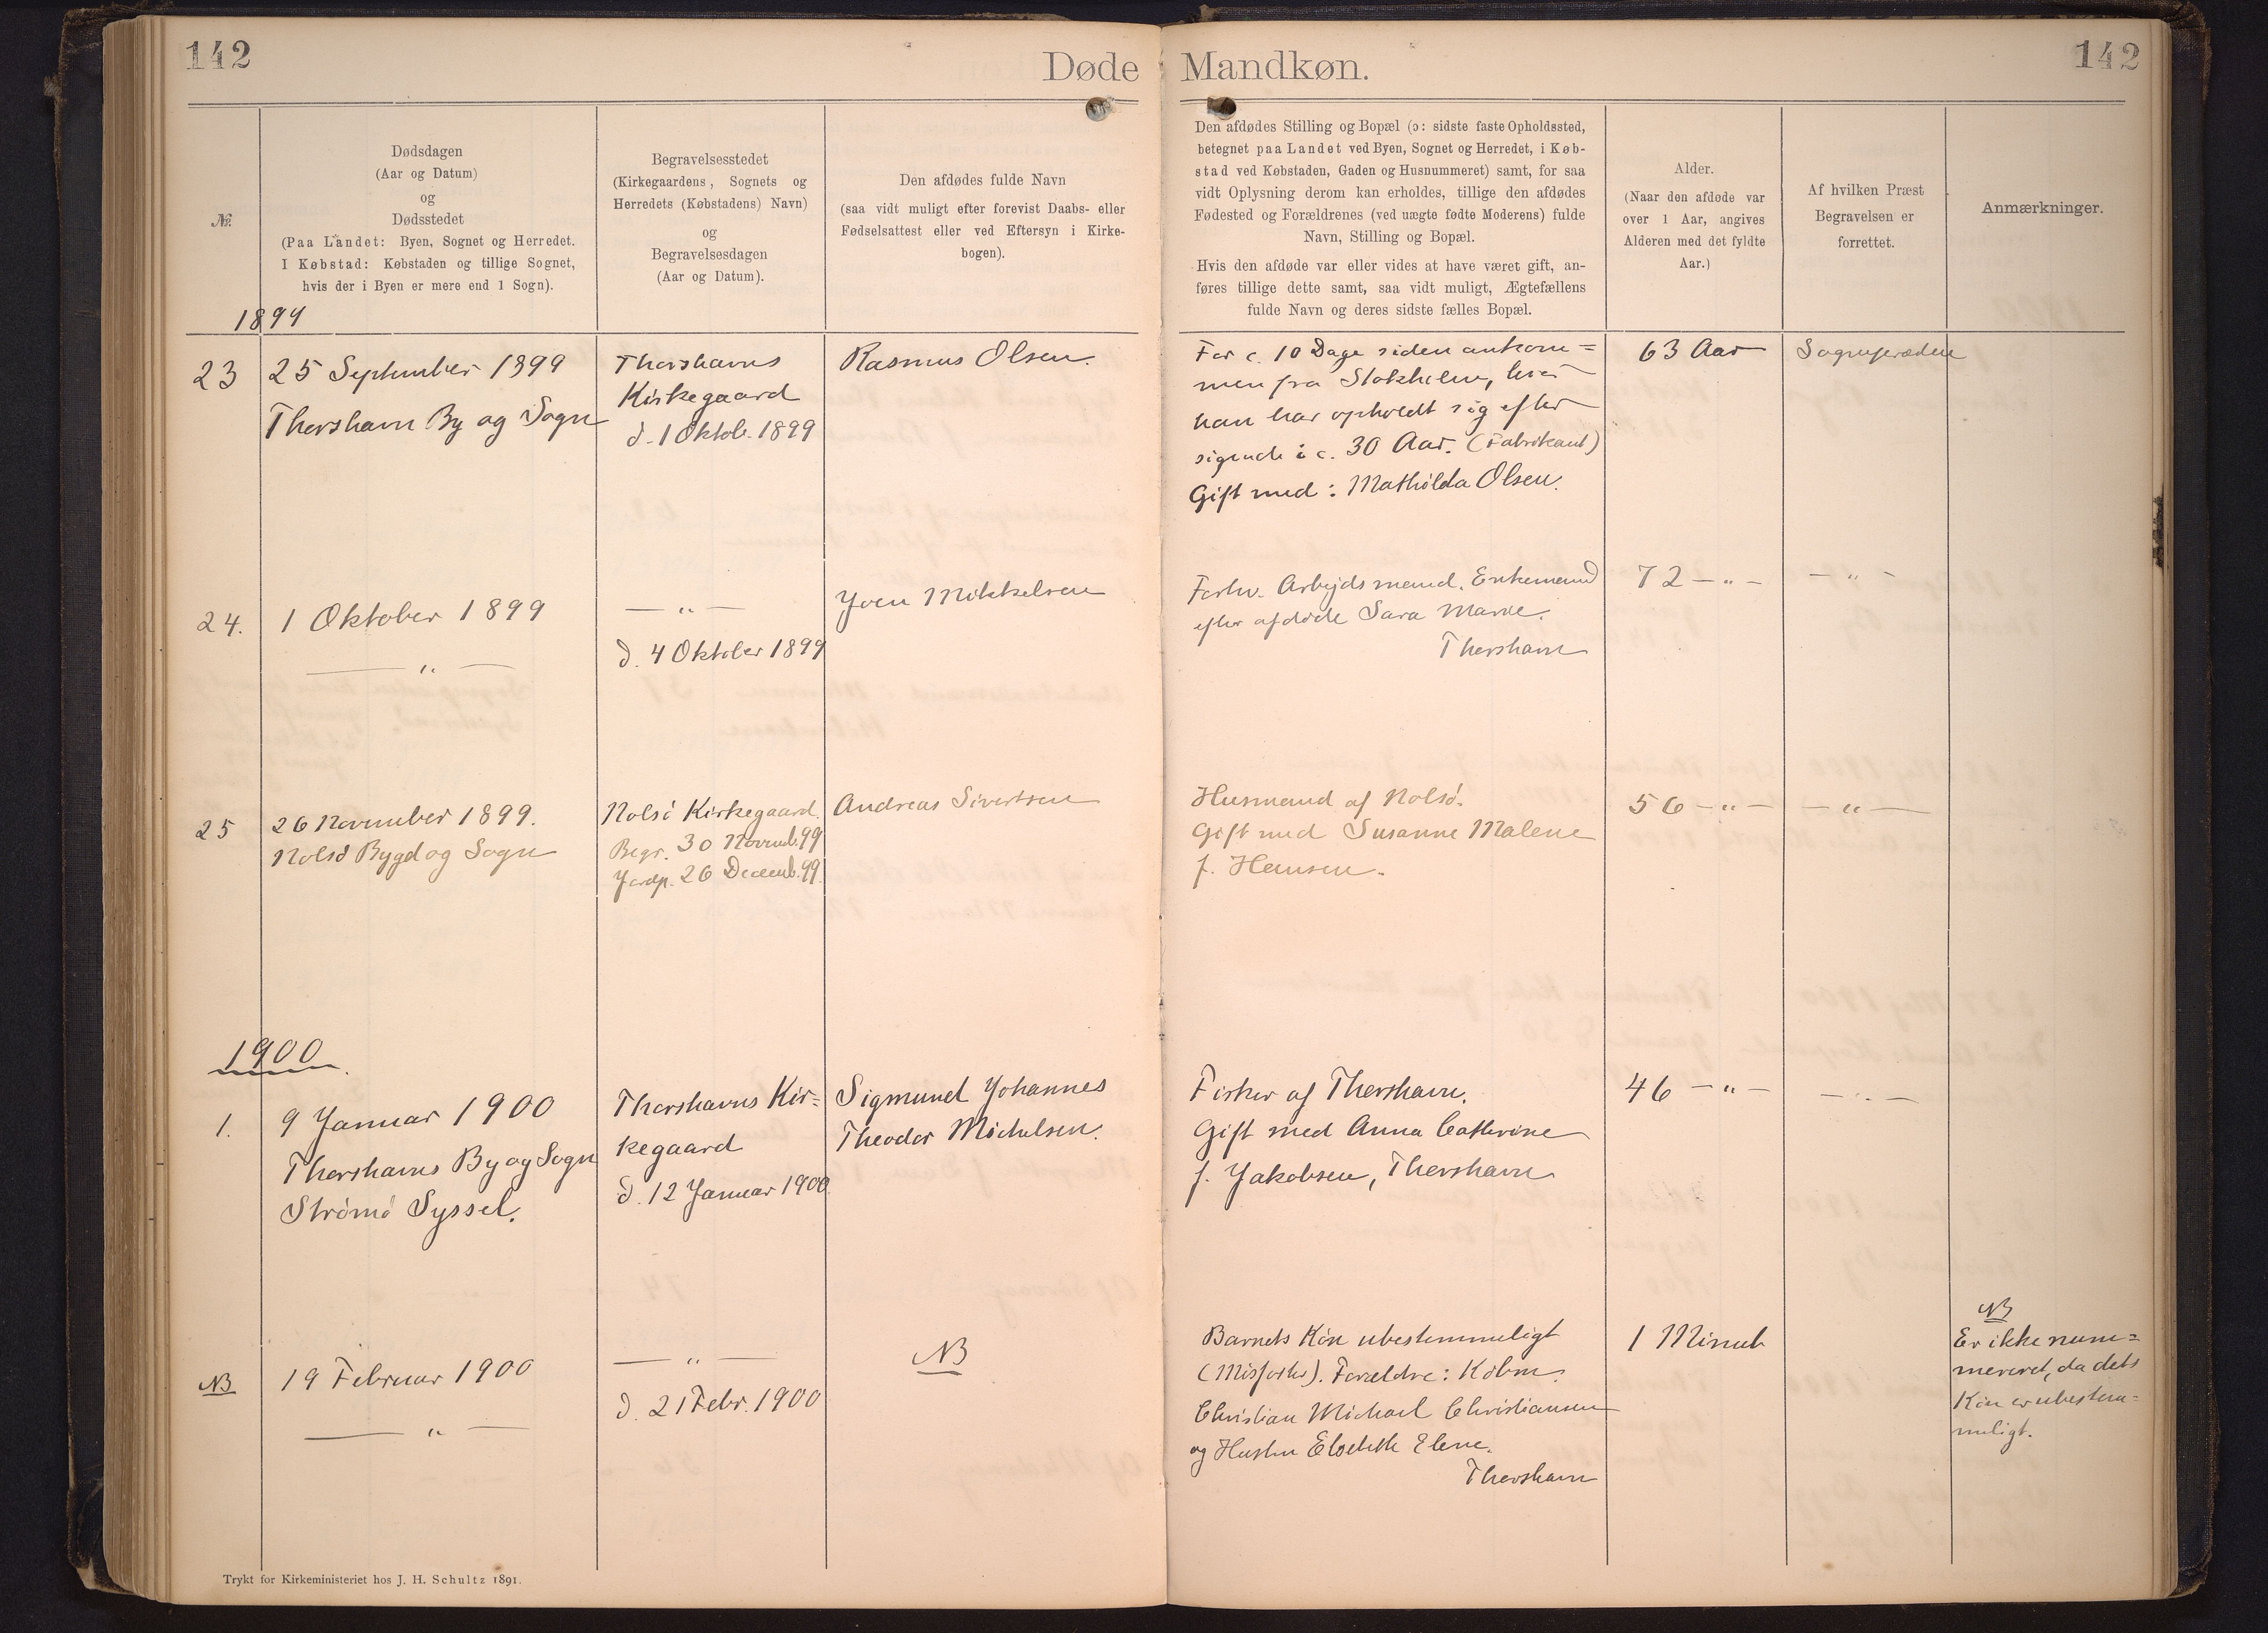 142
Døde Mandkøn.
142
№.
Dødsdagen
(Aar og Datum)
og
Dødsstedet
(Paa Landet: Byen, Sognet og Herredet.
I Købstad: Købstaden og tillige Sognet,
hvis der i Byen er mere end 1 Sogn).
Begravelsesstedet
(Kirkegaardens, Sognets og
Herredets (Købstadens) Navn)
og
Begravelsesdagen
(Aar og Datum).
Den afdødes fulde Navn
(saa vidt muligt efter forevist Daabs- eller
Fødselsattest eller ved Eftersyn i Kirke-
bogen).
Den afdødes Stilling og Bopæl (ɔ: sidste faste Opholdssted,
betegnet paa Landet ved Byen, Sognet og Herredet, i Køb-
stad ved Købstaden, Gaden og Husnummeret) samt, for saa
vidt Oplysning derom kan erholdes, tillige den afdødes
Fødested og Forældrenes (ved uægte fødte Moderens) fulde
Navn, Stilling og Bopæl.
Hvis den afdøde var eller vides at have været gift, an-
føres tillige dette samt, saa vidt muligt, Ægtefællens
fulde Navn og deres sidste fælles Bopæl.
Alder.
(Naar den afdøde var
over 1 Aar, angives
Alderen med det fyldte
Aar.)
Af hvilken Præst
Begravelsen er
forrettet.
Anmærkninger.
1899
23
25 September 1899
Thorshavn By og Sogn
Thorshavns
Kirkegaard
d. 1 Oktob. 1899
Rasmus Olsen.
For c. 10 Dage siden ankom=
men fra Stokholm, hvor
han har opholdt sig efter
sigende i c. 30 Aar. (Fabrikant)
Gift med: Mathilda Olsen.
63 Aar
Sognepræsten
24.
1 Oktober 1899
— " —
— " —
d. 4 Oktober 1899
Joen Mikkelsen
Forhv. Arbejdsmand. Enkemand
efter afdøde Sara Marie.
Thorshavn
72 — " —
— " —
25
26 November 1899.
Nolsö Bygd og Sogn
Nolsö Kirkegaard.
Begr. 30 Novemb. 99
Jordp. 26 Decemb. 99.
Andreas Sivertsen
Husmand af Nolsö.
Gift med Susanne Malene
f. Hansen.
56 — " —
— " —
1900.
1.
9 Januar 1900
Thorshavns By og Sogn
Strömö Syssel.
Thorshavns Kir=
kegaard
d. 12 Januar 1900
Sigmund Johannes
Theodor Michelsen.
Fisker af Thorshavn.
Gift med Anna Cathrine
f. Jakobsen, Thorshavn
46 — " —
— " —
NB
19 Februar 1900
— " —
— " —
d. 21 Febr. 1900
NB
Barnets Kön ubestemmeligt
(Misfoster). Forældre: Köbm.
Christian Michael Christiansen
og Hustru Elsebeth Elene.
Thorshavn
1 Minut
NB
Er ikke num=
mereret, da dets
Kön er ubestem=
meligt.
Trykt for Kirkeministeriet hos J. H. Schultz 1891.